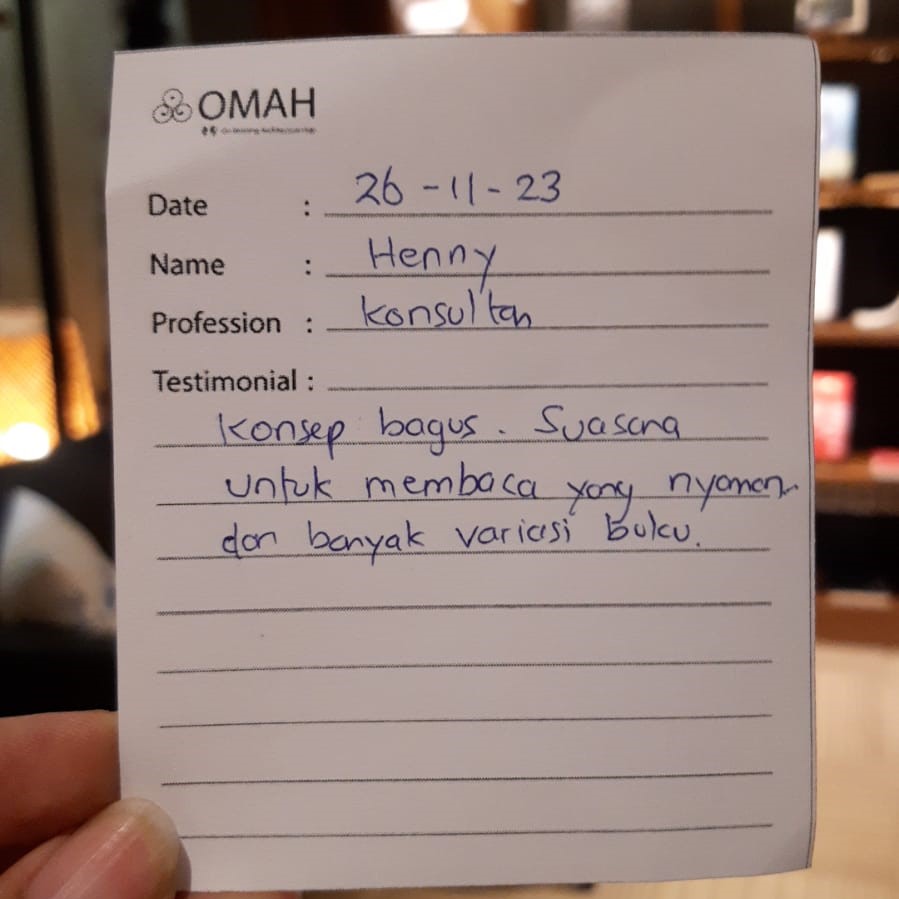 OMAH
Date : 26-11-23
Name : Henny
Profession : Konsultan
Testimonial :
Konsep bagus. Suasana
untuk membaca yang nyaman
dan banyak variasi buku.